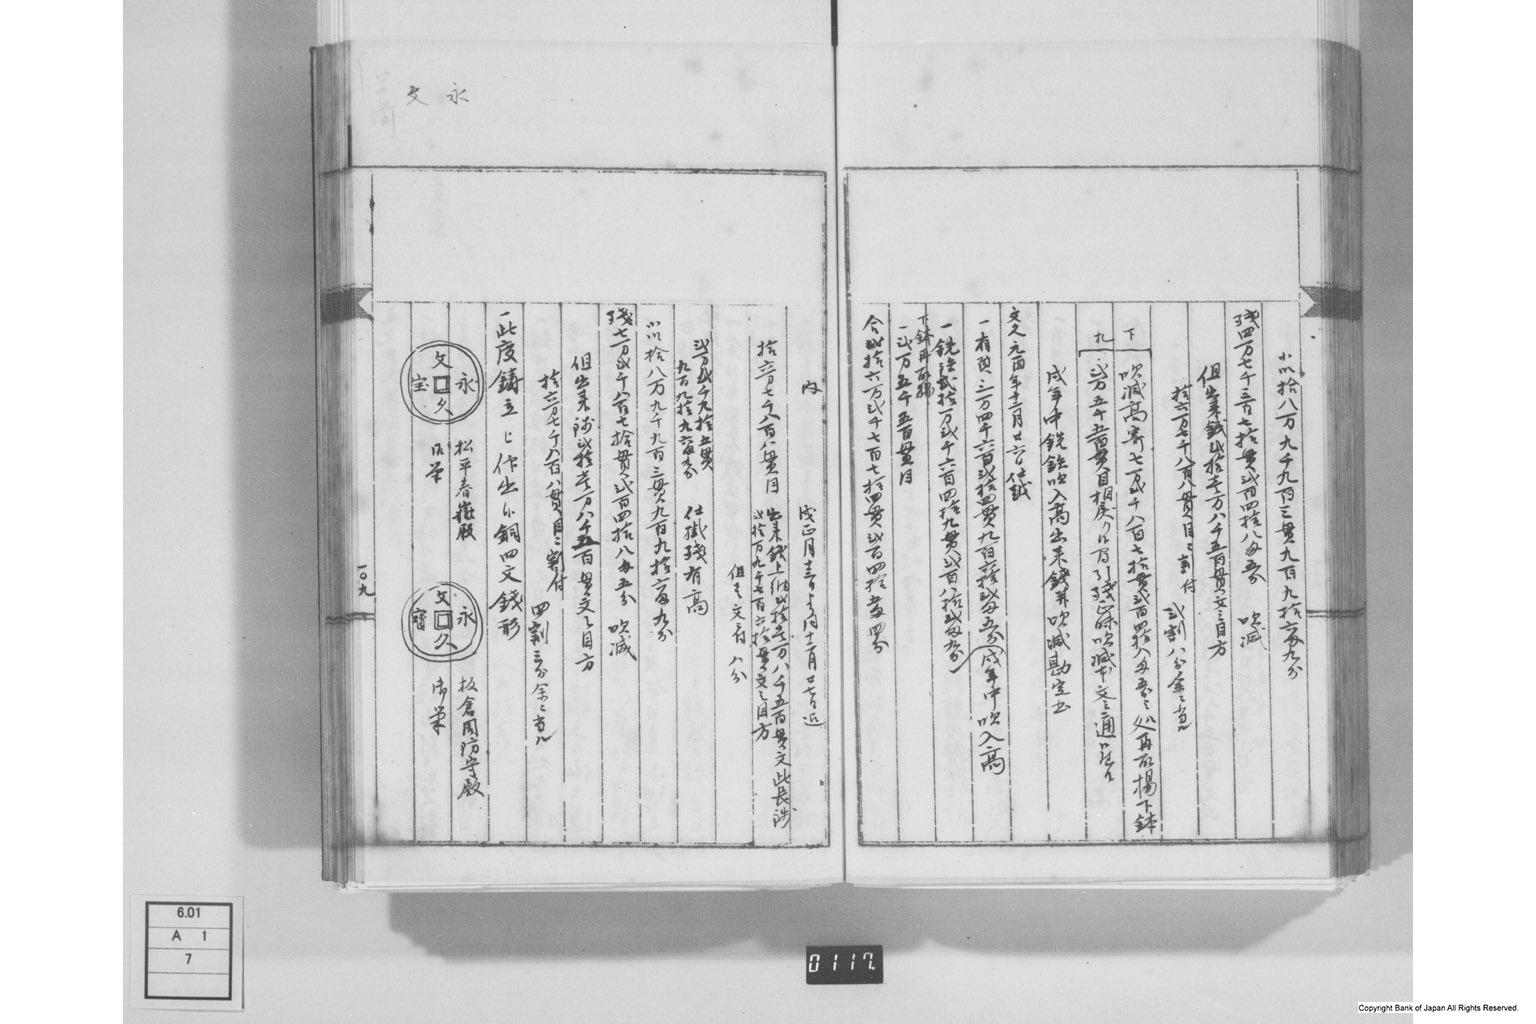 小以拾八万九千九百三貫九百九拾六匁九分
残四万七千三百七拾貫弐百四拾八匁五分 吹減
但出来銭弐拾壱万八千五百貫文之目方
拾六万七千八百八貫目ニ割付 弐割八分余ニ当ル
下 吹減高寄七万弐千八百七拾貫弐百四拾八匁五分之処再取揚下鉢
ケ札 弐万五千五百貫目相戻り
戌年中銑鉄吹入高出来銭并吹減勘定書
文久元酉年十二月廿六日仕越
一有高三万四千六百弐拾四貫九百六拾弐匁五分 戌年中吹入高
一銑鉄弐拾万弐千六百四拾九貫弐百八拾弐匁九分
下鉢再取揚
一弐万五千五百貫目
合弐拾六万弐千七百七拾四貫弐百四拾五匁四分
永 文
内 戌正月十三日より同十二月廿七日迄
拾六万七千八百八貫目 出来銭上納弐拾壱万八千五百貫文此長渉
弐拾万九千七百六拾貫文之目方
但壱文ニ付八分
弐万弐千九拾五貫
九百九拾六匁九分 仕掛残有高
小以拾八万九千九百三貫九百九拾六匁九分
残七万弐千八百七拾貫弐百四拾八匁五分 吹減
但出来銭弐拾壱万八千五百貫文之目方
拾六万七千八百八貫目ニ割付 四割三分余ニ当ル
一此度鋳立ニ作出候銅四文銭形
文久永宝 松平春嶽殿 御筆
文久永寳 板倉周防守殿 御筆
一〇九
6.01
A 1
7
0117.
Copyright Bank of Japan All Rights Reserved.